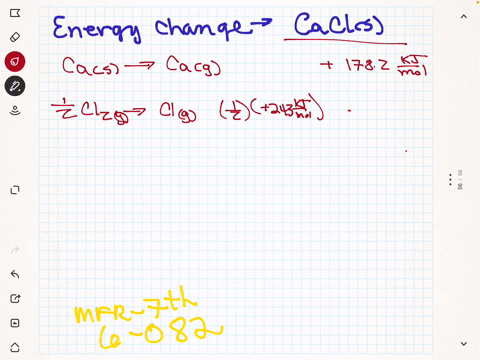 Energy change → CaCl(s)
Ca(s) → Ca(g) + 178.2 KJ/mol
1/2 Cl2(g) → Cl(g) (1/2)(+243 KJ/mol)
MFR-7th
6-082
56 / 56